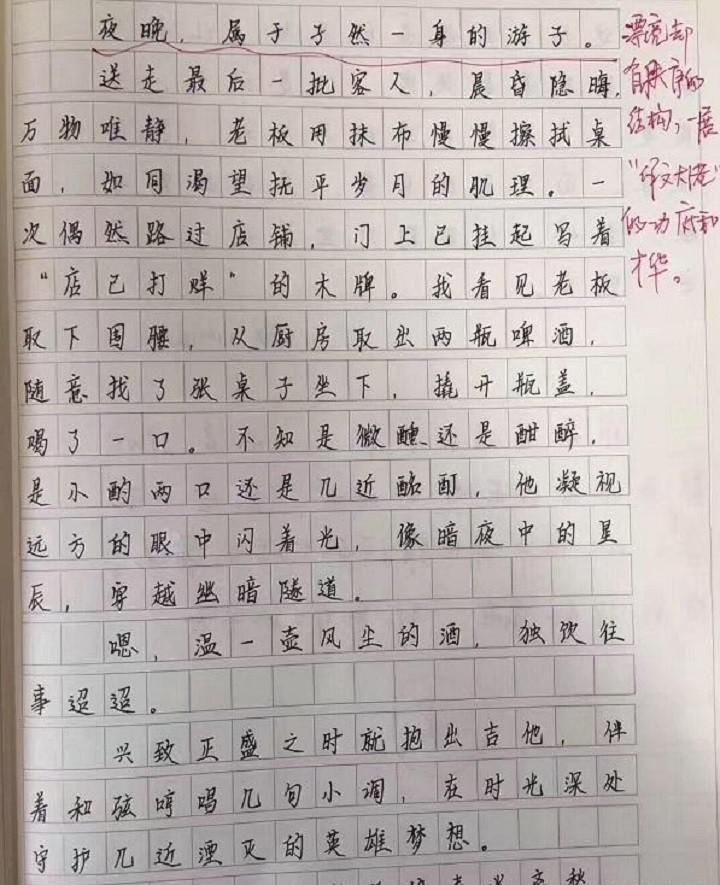 夜晚，属于孑然一身的游子。
送走最后一批客人，晨昏隐晦，
万物唯静，老板用抹布慢慢擦拭桌
面，如同渴望抚平岁月的肌理。一
次偶然路过店铺，门上已挂起写着
“店已打烊”的木牌。我看见老板
取下围腰，从厨房取出两瓶啤酒，
随意找了张桌子坐下，撬开瓶盖，
喝了一口。不知是微醺还是酣醉，
是小酌两口还是几近酩酊，他凝视
远方的眼中闪着光，像暗夜中的星
辰，穿越幽暗隧道。
嗯，温一壶风尘的酒，独饮往
事迢迢。
兴致正盛之时就抱出吉他，伴
着和弦哼唱几句小调，在时光深处
守护几近湮灭的英雄梦想。
漂亮却
有秩序的
结构，一展
“作文大佬”
的功底和
才华。